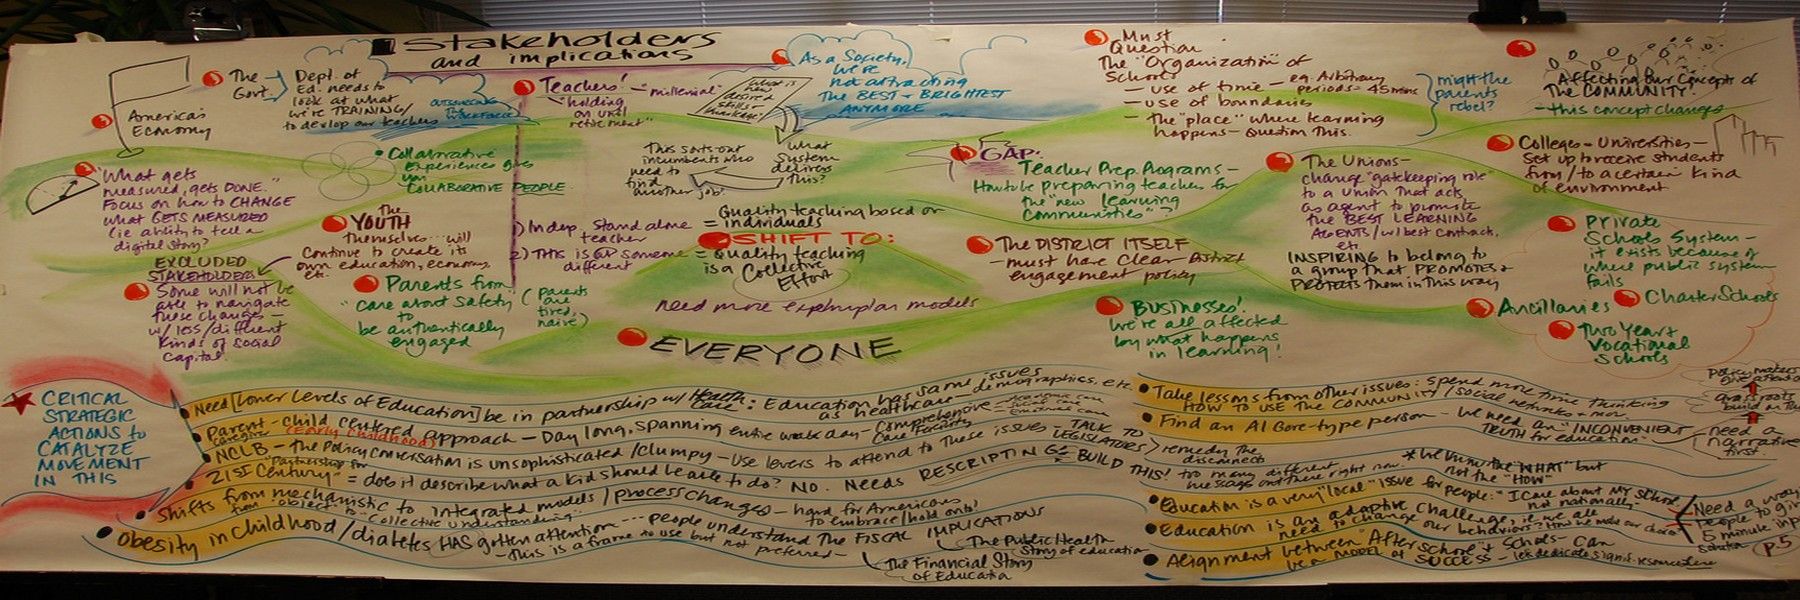 Stakeholders
and implications
America's
Economy
The
Gov't.
Dept. of
Ed. needs to
look at what
we're TRAINING/
to develop our teachers
OUTSOURCING
The
WORKFORCE
Teachers! - "millenial"
"holding
on until
retirement"
What is
new
desired
skills -
As a Society,
We're
not attracting
The BEST & BRIGHTEST
ANYMORE
Must
Question
The "Organization" of
Schools
- use of time - eg. Arbitrary
periods = 45 mins
- use of boundaries
- The "place" where learning
happens - Question This.
might the
parents
rebel?
Affecting our Concepts of
The COMMUNITY!
- This concept changes
"What gets
measured, gets DONE."
Focus on how to CHANGE
what GETS MEASURED
(ie ability to tell a
digital story?
Collaborative
Experiences gives
you
COLLABORATIVE PEOPLE
This sorts out
incumbents who
need to
find
another job!
What
System
delivers
This?
GAP:
Teacher Prep. Programs -
How to be preparing teachers for
the "new learning
Communities"?
The Unions -
change "gatekeeping role"
to a union that acts
as agent to promote
the BEST LEARNING
AGENTS / w/ best contracts,
etc.
INSPIRING to belong to
a group that PROMOTES &
PROTECTS them in this way
Colleges & Universities -
Set up to receive students
from / to a certain kind
of environment
The
YOUTH
themselves... will
Continue to create its
own education, economy,
etc.
1) Indep Stand alone
teacher
= Quality teaching based on
individuals
SHIFT TO:
2) THIS is a someone
different
= Quality teaching
is a Collective
Effort
need more exemplar models
The DISTRICT ITSELF
- must have clear District
engagement policy
Private
Schools System -
it exists because of
where public system
fails
EXCLUDED
STAKEHOLDERS
Some will not be
able to navigate
these changes -
w/ less/different
kinds of social
capital.
Parents from
"care about safety"
to
be authentically
engaged
(parents
are
tired,
naive)
Businesses!
We're all affected
by what happens
in learning!
Ancillaries
Charter Schools
Two Year &
Vocational
Schools
EVERYONE
CRITICAL
STRATEGIC
ACTIONS to
CATALYZE
MOVEMENT
IN THIS
Need [lower levels of Education] be in partnership w/ Health Care: Education has same issues
as healthcare - demographics, etc.
Parent-child centered approach - Day long, spanning entire work day -
caregiver (Early Childhood)
NCLB - The Policy conversation is unsophisticated / clumpy - Use levers to attend to These issues - TALK TO
LEGISLATORS
remedy The
disconnects
"Partnership for
21st Century" = does it describe what a kid should be able to do? NO. Needs RESCRIPTING & BUILD THIS! too many different
messages out there right now.
Shifts from mechanistic to integrated models / process changes - hard for Americans
to embrace/hold onto!
from "object" to "Collective understanding"
Obesity in childhood / diabetes HAS gotten attention... people understand The FISCAL IMPLICATIONS
- This is a frame to use but not preferred -
The Public Health
Story of education
The Financial Story
of Education
Take lessons from other issues: spend more time thinking
HOW TO USE THE COMMUNITY / social networks & more
Find an Al Gore-type person - We need an "INCONVENIENT
TRUTH for education"
grass roots
need a
narrative
first.
* We know the "WHAT" but
not the "HOW"
Education is a very "local" issue for people: "I care about MY School
not nationally"
Education is an adaptive challenge, if we are
need to change our behaviors
Alignment between "After school" & Schools - can
be a MODEL of SUCCESS -
Need a way
people to give
5 minute
P.5